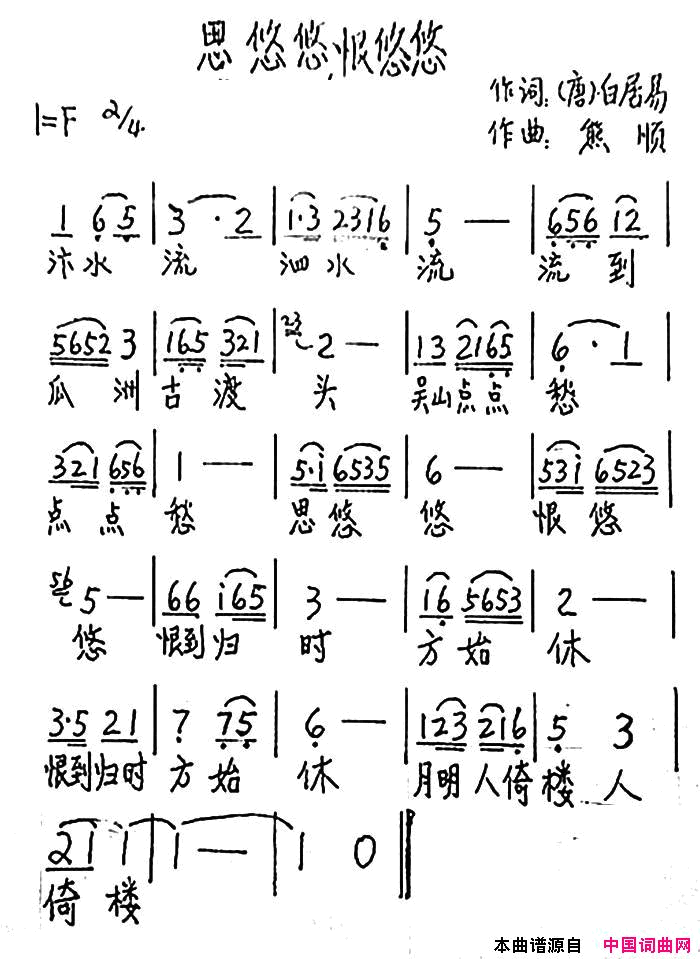 思悠悠,恨悠悠
作词:(唐)·白居易
1=F 2/4.
作曲: 熊顺
1 6 5 | 3 · 2 | 1·3 2316 | 5 — | 656 12 |
汴水 流 泗水 流 流 到
5652 3 | 165 321 | 23 2 — | 13 2165 | 6 · 1 |
瓜 洲 古 渡 头 吴山点点 愁
321 656 | 1 — | 5·i 6535 | 6 — | 53i 6523 |
点 点 愁 思悠 悠 恨 悠
56 5 — | 66 i65 | 3 — | 16 5653 | 2 — |
悠 恨到归 时 方始 休
3·5 21 | 7 75 | 6 — | 123 216 | 5 3 |
恨到归时 方始 休 月明人倚 楼 人
21 1 | 1 — | 1 0 ||
倚 楼
本曲谱源自 中国词曲网